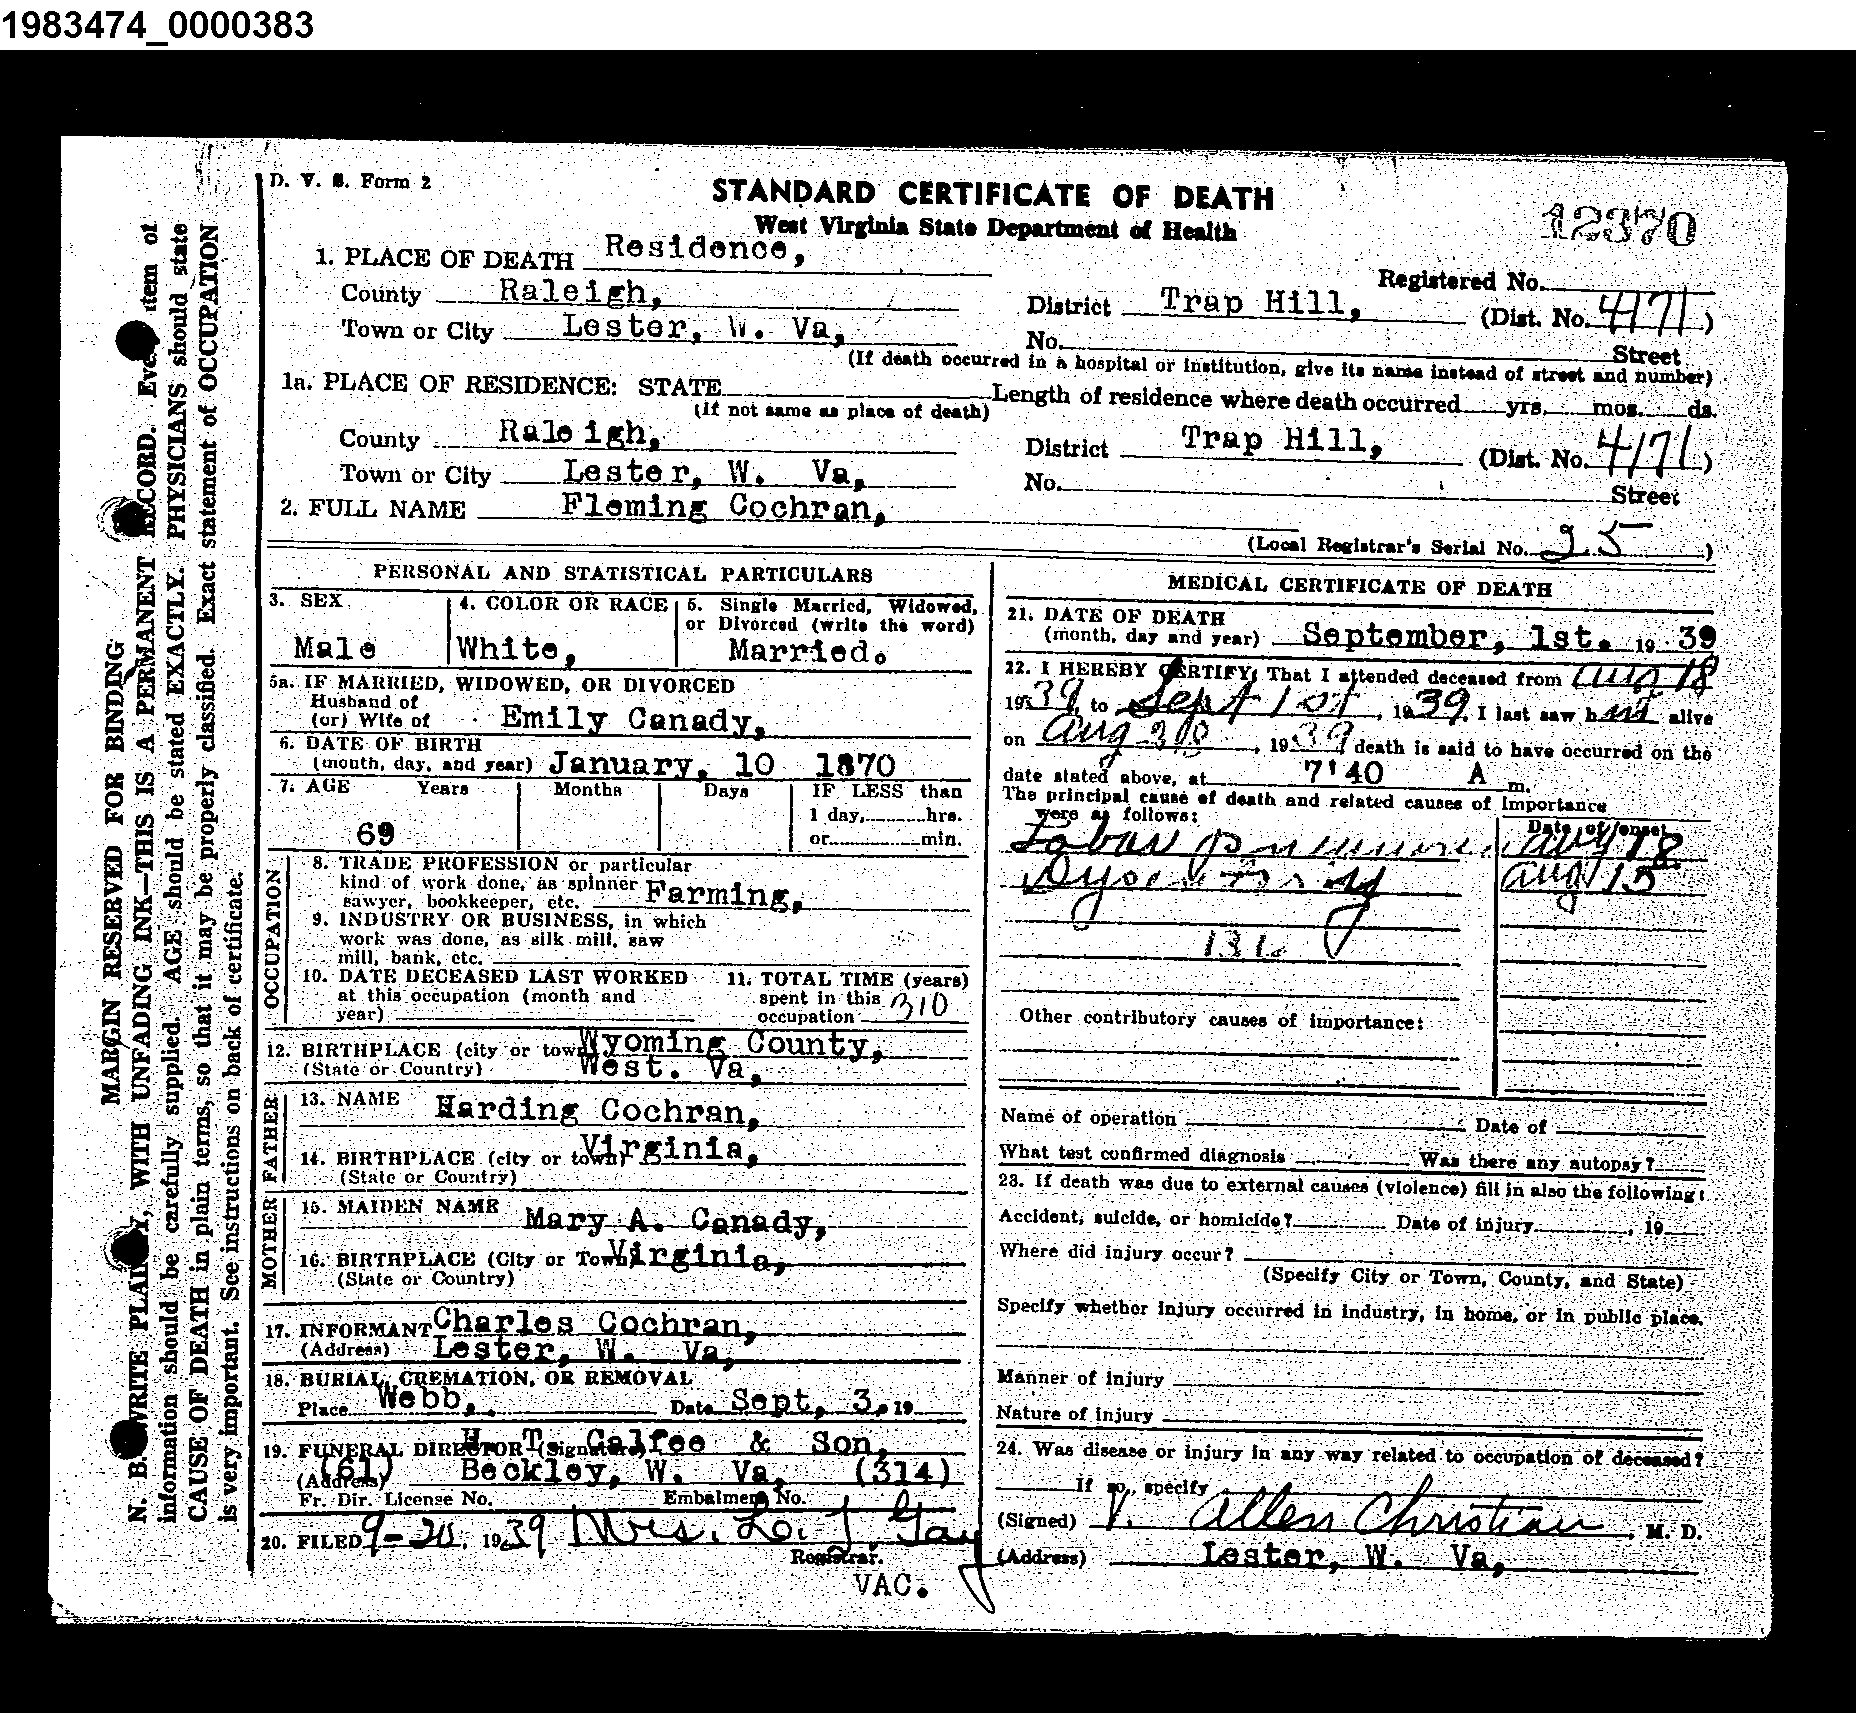 1983474_0000383
D. V. S. Form 2
STANDARD CERTIFICATE OF DEATH
West Virginia State Department of Health
12370
1. PLACE OF DEATH Residence,
Registered No.
County Raleigh,
District Trap Hill, (Dist. No. 4171)
Town or City Lester, W. Va,
No. Street
(If death occurred in a hospital or institution, give its name instead of street and number)
1a. PLACE OF RESIDENCE: STATE
Length of residence where death occurred yrs. mos. ds.
(If not same as place of death)
County Raleigh,
District Trap Hill, (Dist. No. 4171)
Town or City Lester, W. Va,
No. Street
2. FULL NAME Fleming Cochran,
(Local Registrar's Serial No. 25)
PERSONAL AND STATISTICAL PARTICULARS
3. SEX
Male
4. COLOR OR RACE
White,
5. Single Married, Widowed,
or Divorced (write the word)
Married.
5a. IF MARRIED, WIDOWED, OR DIVORCED
Husband of
(or) Wife of Emily Canady,
6. DATE OF BIRTH
(month, day, and year) January, 10 1870
7. AGE Years Months Days IF LESS than
1 day, hrs.
69
or min.
OCCUPATION
8. TRADE PROFESSION or particular
kind of work done, as spinner
sawyer, bookkeeper, etc. Farming,
9. INDUSTRY OR BUSINESS, in which
work was done, as silk mill, saw
mill, bank, etc.
10. DATE DECEASED LAST WORKED
at this occupation (month and
year)
11. TOTAL TIME (years)
spent in this
occupation
12. BIRTHPLACE (city or town) Wyoming County,
(State or Country) West. Va,
FATHER
13. NAME Harding Cochran,
14. BIRTHPLACE (city or town) Virginia,
(State or Country)
MOTHER
15. MAIDEN NAME Mary A. Canady,
16. BIRTHPLACE (City or Town) Virginia,
(State or Country)
17. INFORMANT Charles Cochran,
(Address) Lester, W. Va,
18. BURIAL, CREMATION, OR REMOVAL
Place Webb, Date Sept, 3, 19
19. FUNERAL DIRECTOR (Signature) H. T. Calfee & Son,
(Address) (61) Beckley, W. Va, (314)
Fr. Dir. License No. Embalmers No.
20. FILED 9-20, 1939 Mrs. L. J. Gay
Registrar.
VAC.
MEDICAL CERTIFICATE OF DEATH
21. DATE OF DEATH
(month, day and year) September, 1st. 1939
22. I HEREBY CERTIFY, That I attended deceased from Aug 18
1939, to Sept 1st, 1939, I last saw him alive
on Aug 30, 1939 death is said to have occurred on the
date stated above, at 7:40 A m.
The principal cause of death and related causes of importance
were as follows:
Date of onset
Lobar pneumonia Aug 18
Dysentery Aug 15
Other contributory causes of importance:
Name of operation Date of
What test confirmed diagnosis Was there any autopsy?
23. If death was due to external causes (violence) fill in also the following:
Accident, suicide, or homicide? Date of injury , 19
Where did injury occur?
(Specify City or Town, County, and State)
Specify whether injury occurred in industry, in home, or in public place.
Manner of injury
Nature of injury
24. Was disease or injury in any way related to occupation of deceased?
If so, specify
(Signed) V. Allen Christian, M. D.
(Address) Lester, W. Va,
MARGIN RESERVED FOR BINDING
N. B. WRITE PLAINLY, WITH UNFADING INK—THIS IS A PERMANENT RECORD. Every item of
information should be carefully supplied. AGE should be stated EXACTLY. PHYSICIANS should state
CAUSE OF DEATH in plain terms, so that it may be properly classified. Exact statement of OCCUPATION
is very important. See instructions on back of certificate.